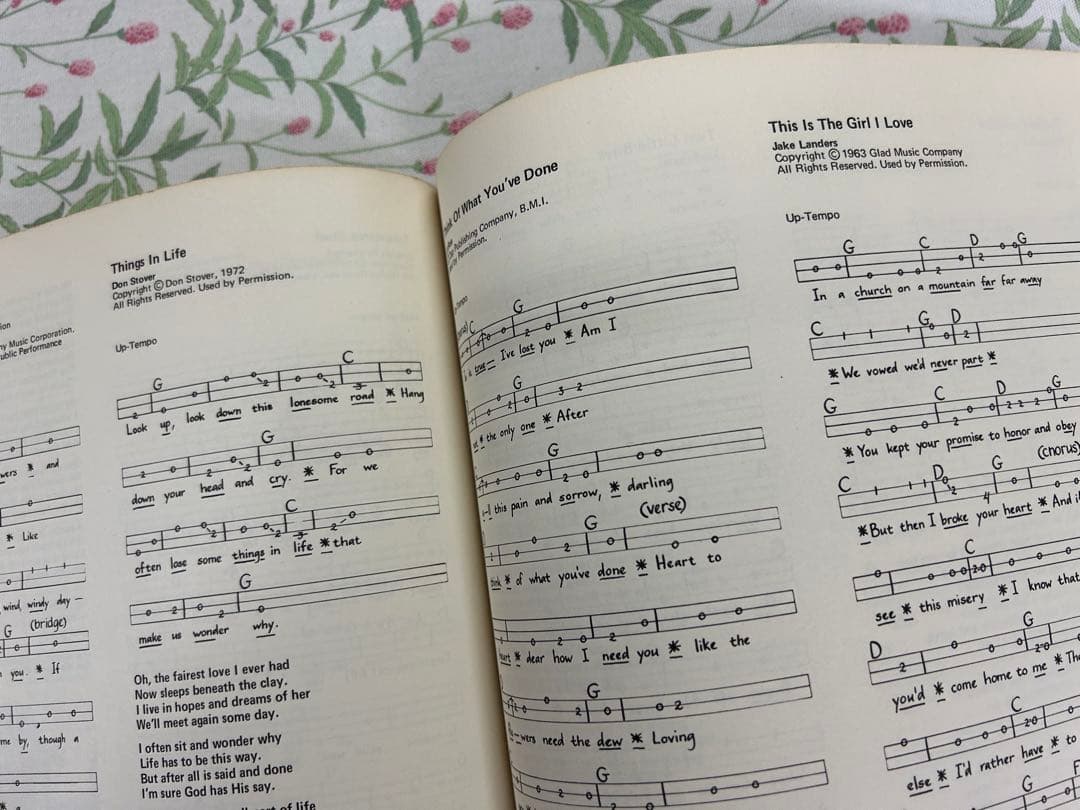 ny Music Corporation.
ublic Performance
and
* Like
wind, windy day –
G (bridge)
you. * If
me by, though a
Things In Life
Don Stover
Copyright © Don Stover, 1972
All Rights Reserved. Used by Permission.
Up-Tempo
G C
Look up, look down this lonesome road * Hang
G
down your head and cry. * For we
C
often lose some things in life * that
G
make us wonder why.
Oh, the fairest love I ever had
Now sleeps beneath the clay.
I live in hopes and dreams of her
We'll meet again some day.
I often sit and wonder why
Life has to be this way.
But after all is said and done
I'm sure God has His say.
of life
Of What You've Done
Publishing Company, B.M.I.
Permission.
C G
true – I've lost you * Am I
G
* the only one * After
G
this pain and sorrow, * darling
G (verse)
think * of what you've done * Heart to
* dear how I need you * like the
G
wers need the dew * Loving
G
This Is The Girl I Love
Jake Landers
Copyright © 1963 Glad Music Company
All Rights Reserved. Used by Permission.
Up-Tempo
G C D G
In a church on a mountain far far away
C G D
* We vowed we'd never part *
G C D G
* You kept your promise to honor and obey
C D G (chorus)
* But then I broke your heart * And
C
see * this misery * I know that
D G
you'd * come home to me * The
C
else * I'd rather have * to
G